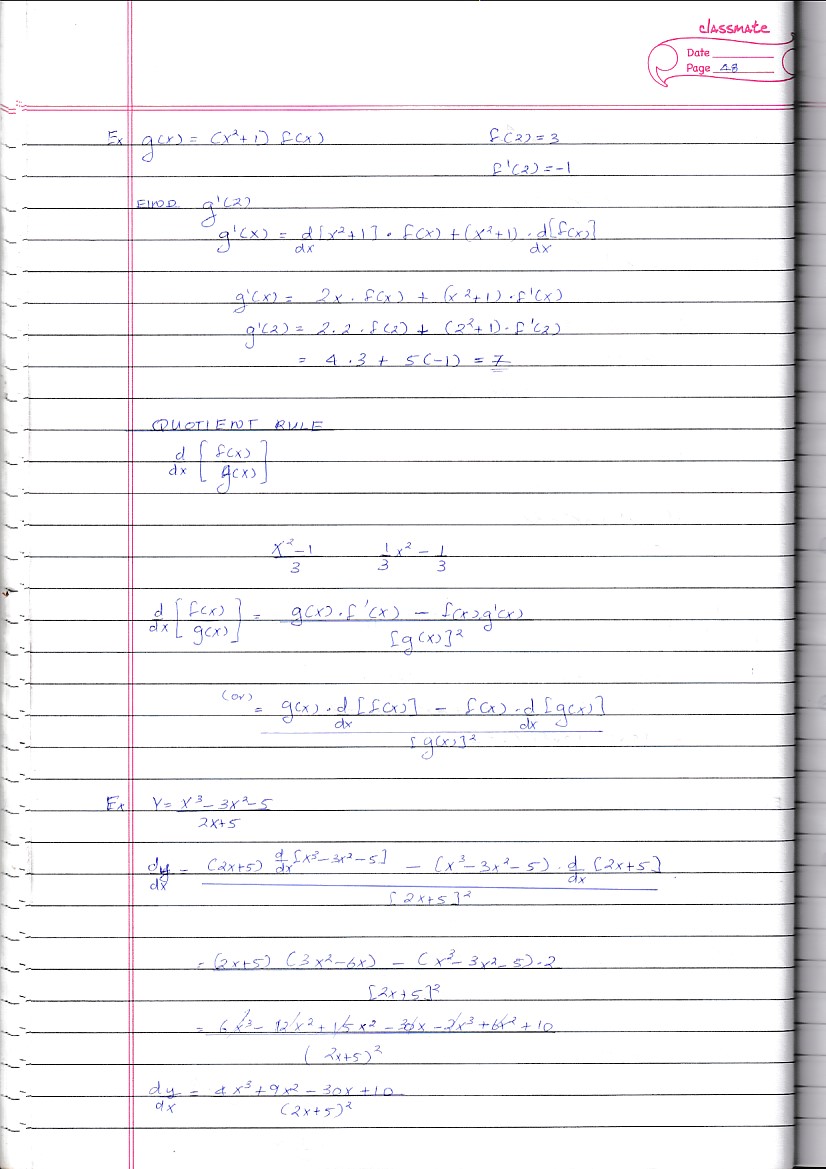 classmate
Date
Page 48
Ex g(x) = (x²+1) f(x) f(2) = 3
f'(2) = -1
FIND g'(2)
g'(x) = d/dx [x²+1] · f(x) + (x²+1) · d/dx [f(x)]
g'(x) = 2x · f(x) + (x²+1) · f'(x)
g'(2) = 2·2 · f(2) + (2²+1) · f'(2)
= 4 · 3 + 5(-1) = 7
QUOTIENT RULE
d/dx [f(x)/g(x)]
x²-1/3 1/3 x² - 1/3
d/dx [f(x)/g(x)] = g(x) · f'(x) - f(x).g'(x) / [g(x)]²
(or) = g(x) · d/dx [f(x)] - f(x) · d/dx [g(x)] / [g(x)]²
Ex Y = x³-3x²-5 / 2x+5
dy/dx = (2x+5) d/dx [x³-3x²-5] - (x³-3x²-5) · d/dx [2x+5] / [2x+5]²
= (2x+5) (3x²-6x) - (x³-3x²-5)·2 / [2x+5]²
= 6x³ - 12x² + 15x² - 30x - 2x³ + 6x² + 10 / (2x+5)²
dy/dx = 4x³+9x²-30x+10 / (2x+5)²